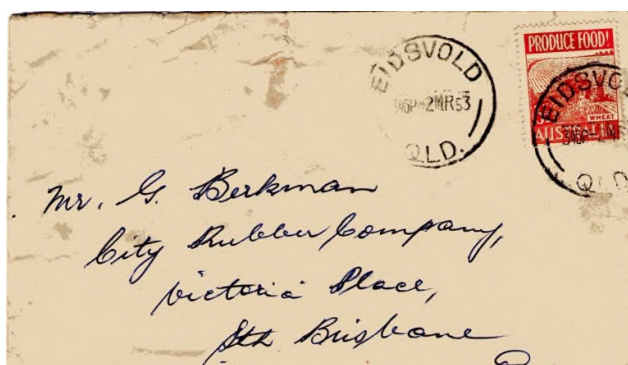 EIDSVOLD
2MR53
QLD.
PRODUCE FOOD!
WHEAT
AUSTRALIA
EIDSVOL
QLD
Mr. G. Berkman
City Rubber Company,
Victoria Place,
Sth Brisbane